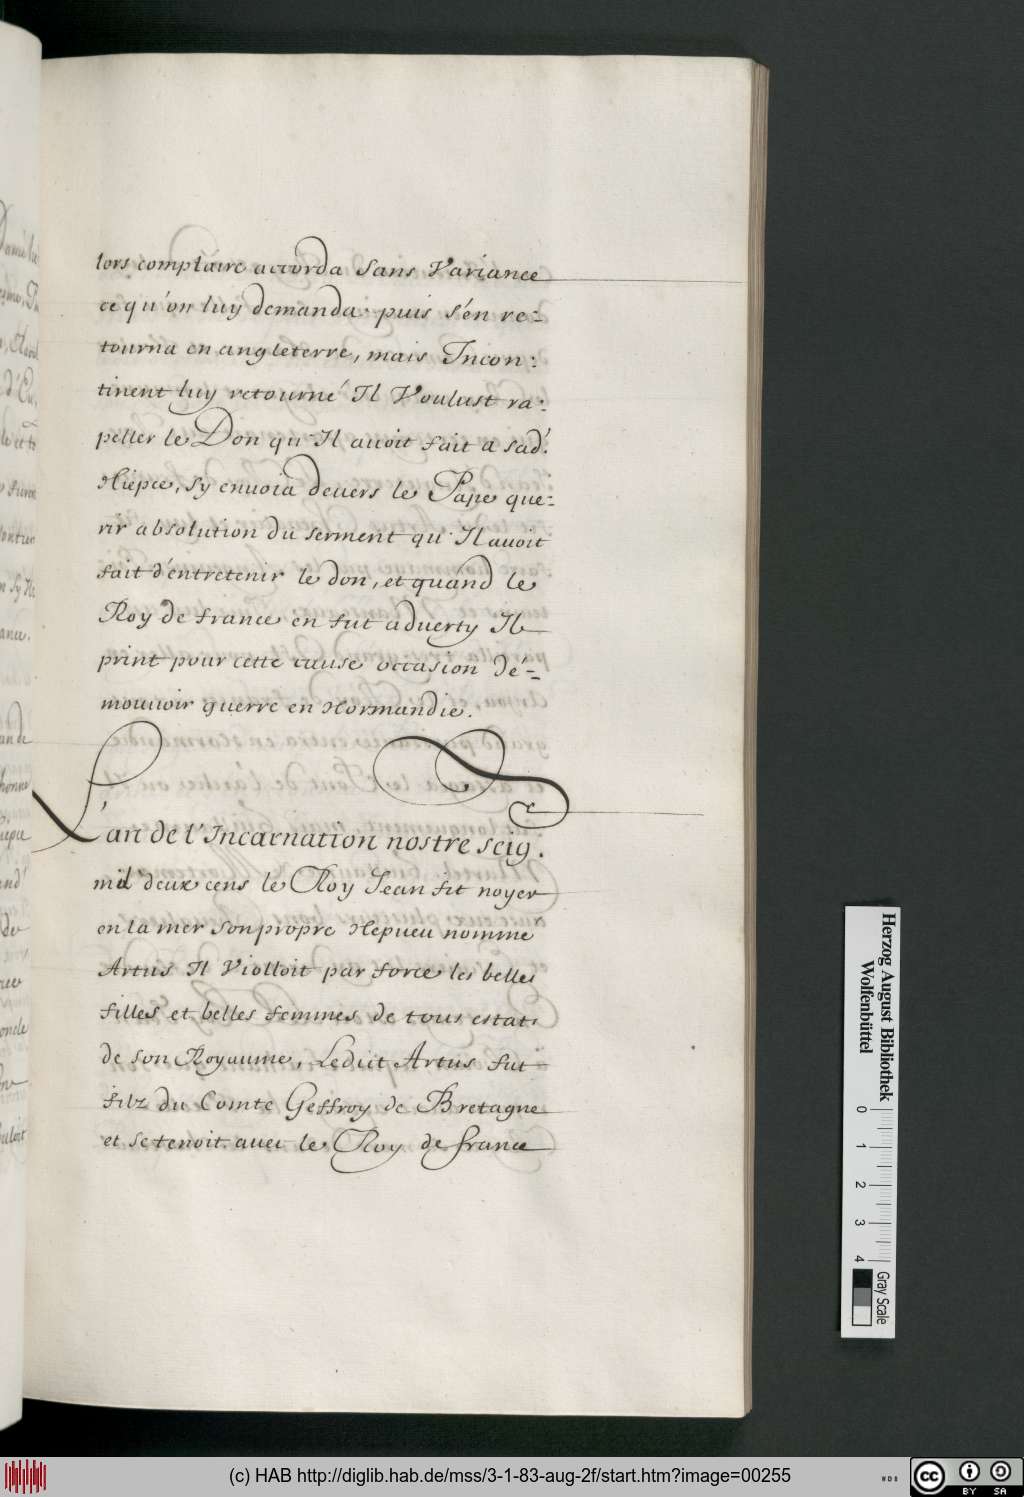 lors complaire accorda sans variance
ce qu'on luy demanda. puis s'én re:
tourna en angleterre, mais Incon:
tinent luy retourné Il Voulust ra:
peller le Don qu'Il avoit fait a sad.
Niepce, sy envoia devers le Pape que:
rir absolution du serment qu'Il avoit
fait d'éntretenir le don, et quánd le
Roy de france en fut adverty Il
print pour cette cause occasion dé:
mouvoir guerre en Normandie.
L'an de l'Incarnation nostre seigr.
mil deux cens le Roy Jean fit noyer
en la mer son propre Nepueu nomme
Artus Il Viólloit par force les belles
filles et belles femmes de tous estats
de son Royaume, Ledict Artus fut
filz du Comte Geffroy de Bretagne
et se tenoit avec le Roy de france
Herzog August Bibliothek
Wolfenbüttel
0 1 2 3 4
Gray Scale
(c) HAB http://diglib.hab.de/mss/3-1-83-aug-2f/start.htm?image=00255
WDB
cc BY SA